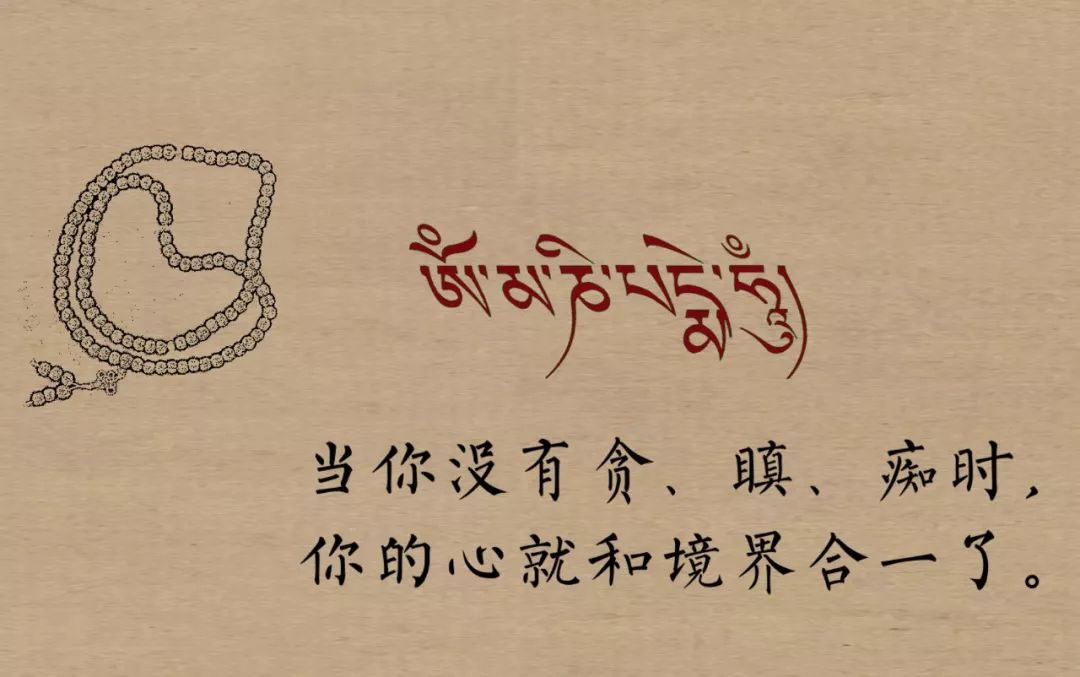 ཨོཾ་མ་ཎི་པདྨེ་ཧཱུྃ།
当你没有贪、瞋、痴时,
你的心就和境界合一了。